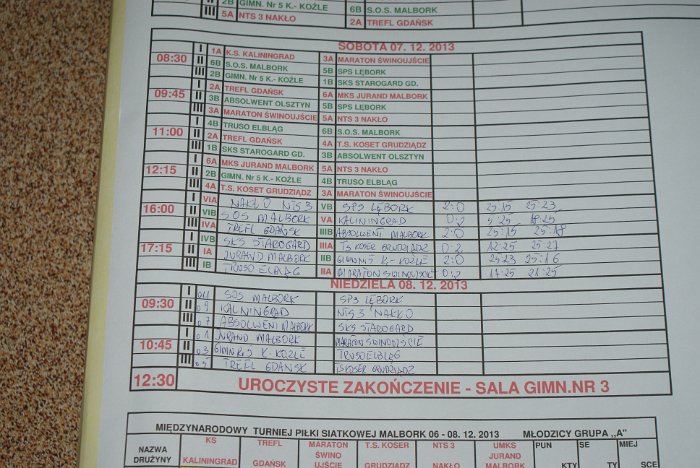 II 2B GIMN. Nr 5 K.- KOŹLE 6B S.O.S. MALBORK
III 5A NTS 3 NAKŁO 2A TREFL GDAŃSK
SOBOTA 07. 12. 2013
08:30 I 1A K.S. KALININGRAD 3A MARATON ŚWINOUJŚCIE
II 6B S.O.S. MALBORK 5B SPS LĘBORK
III 2B GIMN. Nr 5 K.- KOŹLE 1B SKS STAROGARD GD.
09:45 I 2A TREFL GDAŃSK 6A MKS JURAND MALBORK
II 3B ABSOLWENT OLSZTYN 5B SPS LĘBORK
III 3A MARATON ŚWINOUJŚCIE 5A NTS 3 NAKŁO
11:00 I 4B TRUSO ELBLĄG 6B S.O.S. MALBORK
II 2A TREFL GDAŃSK 4A T.S. KOSET GRUDZIĄDZ
III 1B SKS STAROGARD GD. 3B ABSOLWENT OLSZTYN
12:15 I 6A MKS JURAND MALBORK 5A NTS 3 NAKŁO
II 2B GIMN. Nr 5 K.- KOŹLE 4B TRUSO ELBLĄG
III 4A T.S. KOSET GRUDZIĄDZ 3A MARATON ŚWINOUJŚCIE
16:00 I VIA NAKŁO NTS 3 VB SPS LĘBORK 2:0 25:15 25:23
II VIB SOS MALBORK VA KALININGRAD 0:2
III IVA TREFL GDAŃSK IIIB ABSOLWENT MALBORK 2:0 25:15 25:18
17:15 I IVB SKS STAROGARD IIIA TS KOSER GRUDZIĄDZ 0:2
II IA JURAND MALBORK IIB GIMN K-KOŹLE 2:0 25:23 25:16
III IB TRUSO ELBLĄG IIA MARATON ŚWINOUJŚCIE 0:2
NIEDZIELA 08. 12. 2013
09:30 I SOS MALBORK SPS LĘBORK
II KALININGRAD NTS 3 NAKŁO
III ABSOLWENT MALBORK SKS STAROGARD
10:45 I JURAND MALBORK MARATON ŚWINOUJŚCIE
II GIMN K-KOŹLE TRUSO ELBLĄG
III TREFL GDAŃSK TS KOSER GRUDZIĄDZ
12:30 UROCZYSTE ZAKOŃCZENIE - SALA GIMN.NR 3
MIĘDZYNARODOWY TURNIEJ PIŁKI SIATKOWEJ MALBORK 06 - 08. 12. 2013 MŁODZICY GRUPA „A"
NAZWA DRUŻYNY KS KALININGRAD TREFL GDAŃSK MARATON ŚWINO UJŚCIE T.S. KOSER GRUDZIĄDZ NTS 3 NAKŁO UMKS JURAND MALBORK PUN KTY SE TY MIEJ SCE